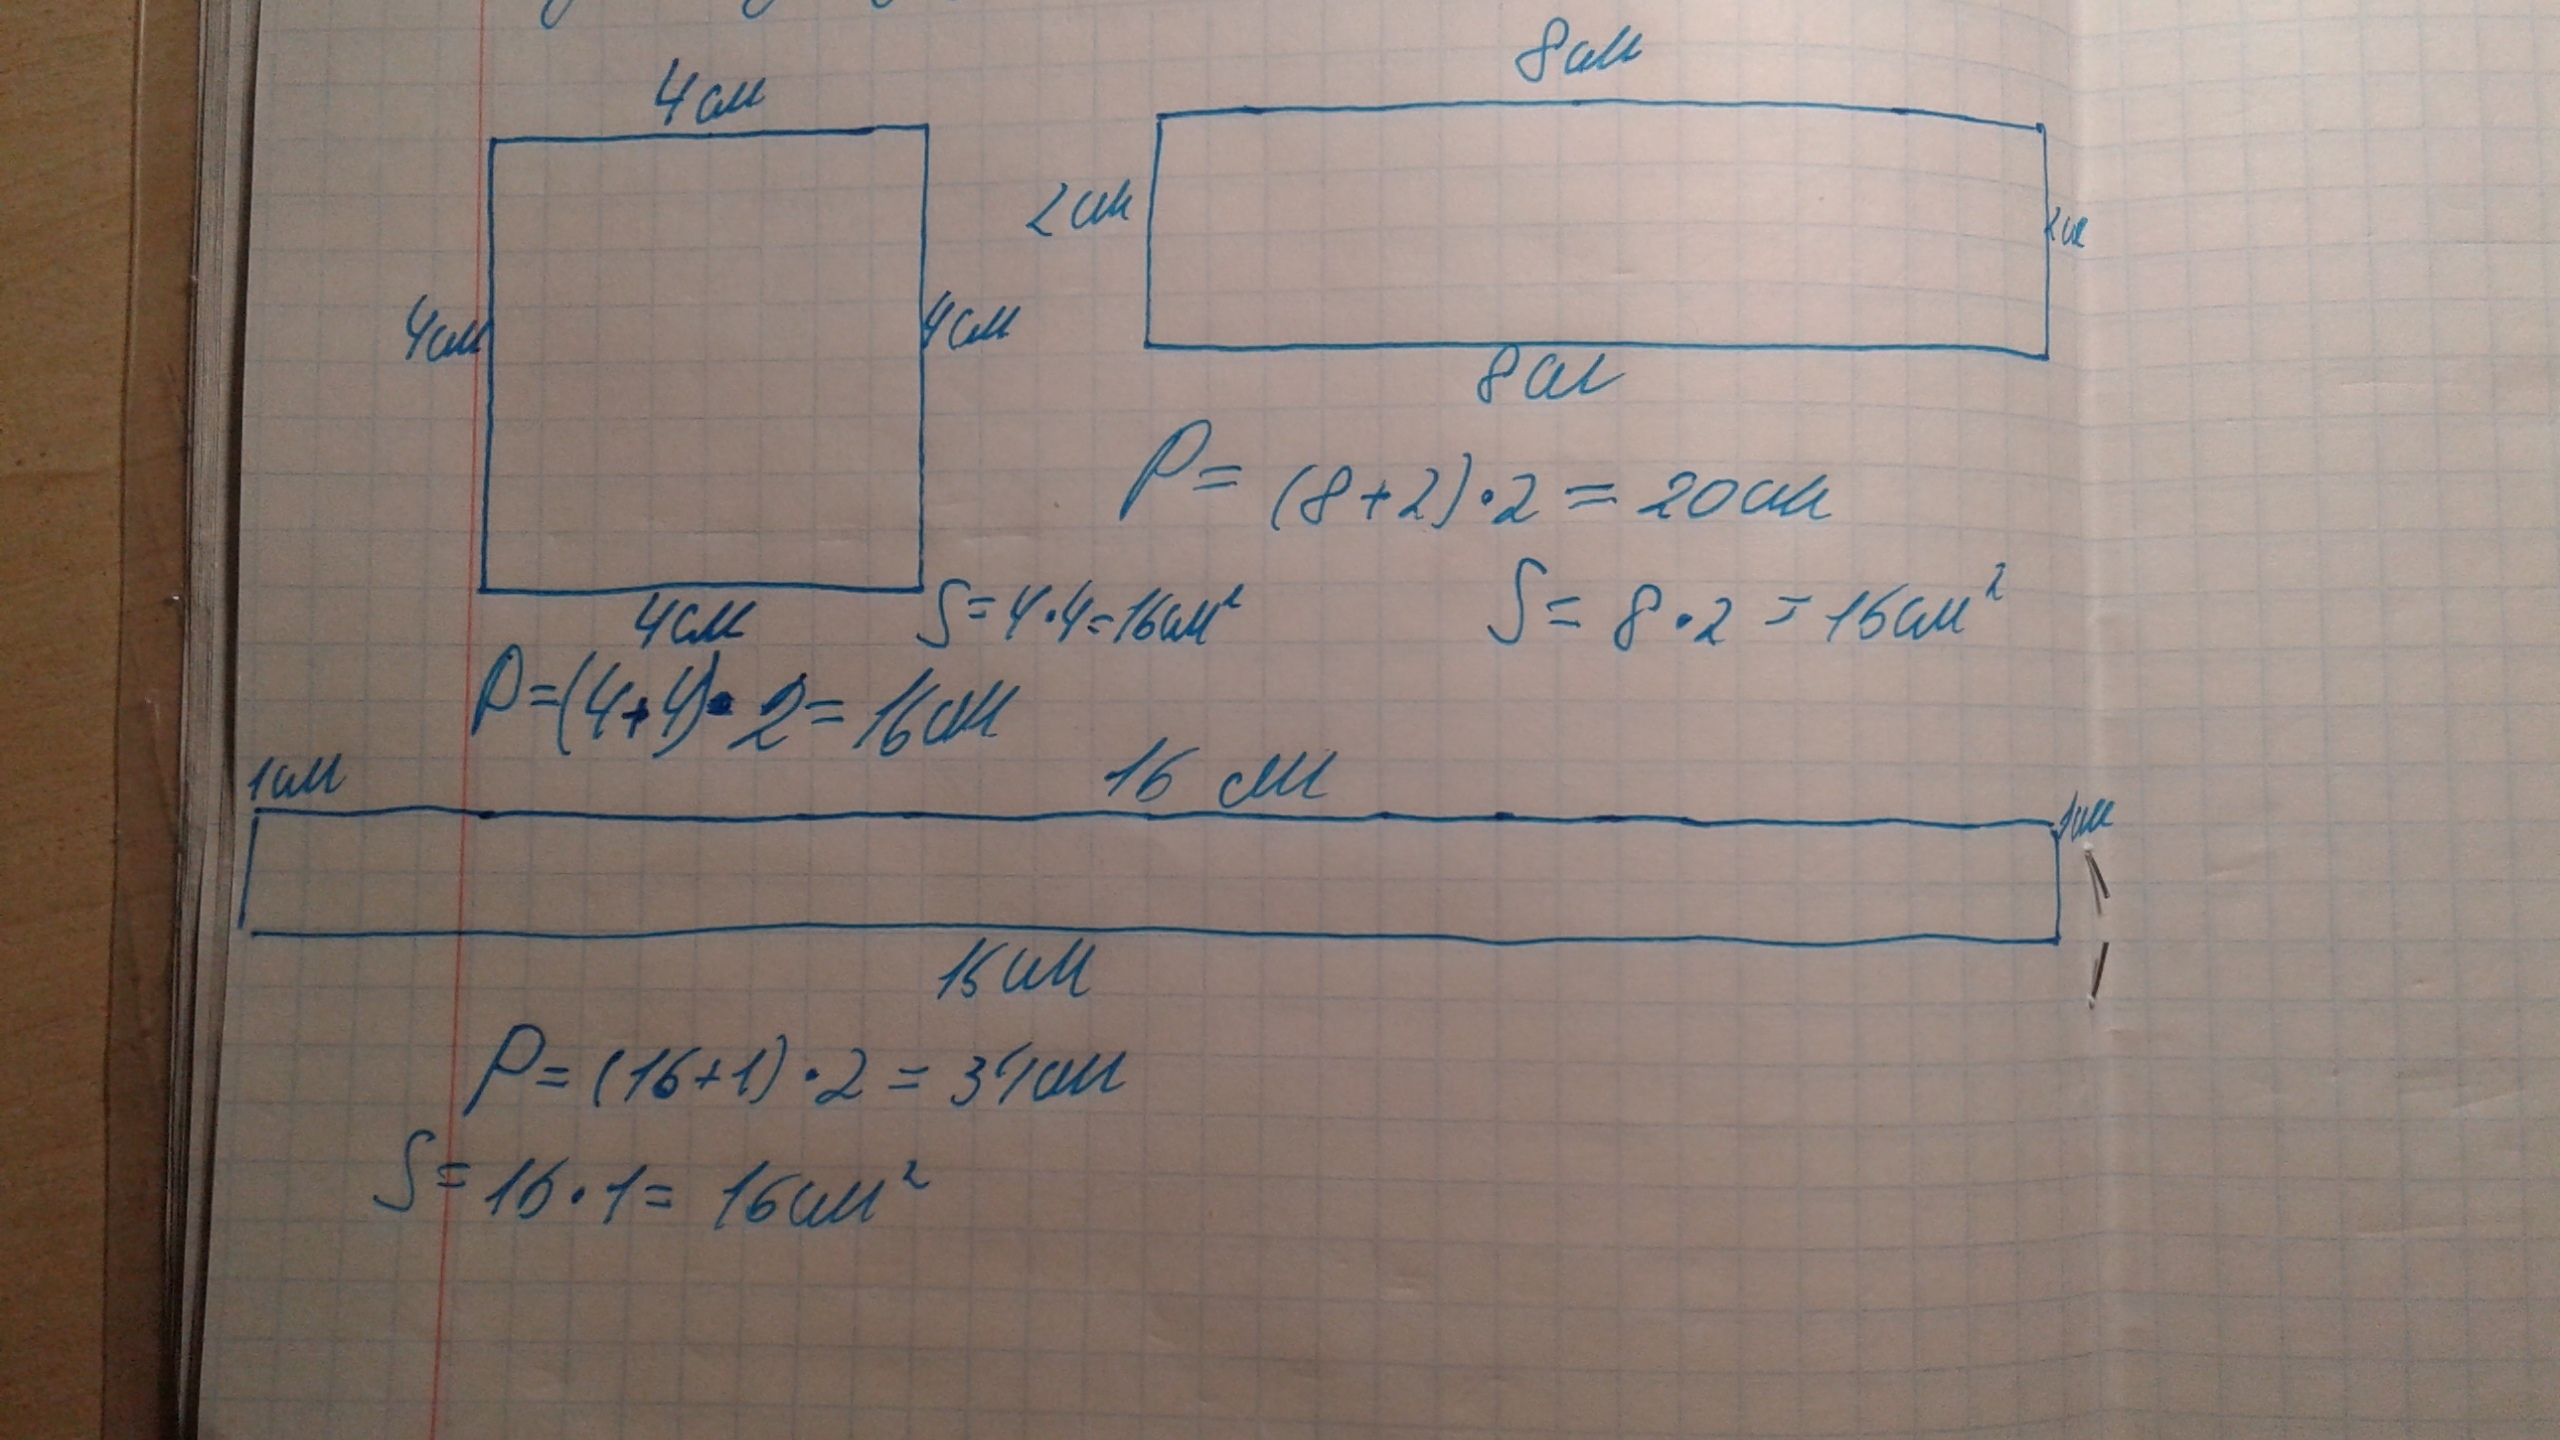 4см
8см
2см
2см
4см
4см
8см
P= (8+2)·2 = 20см
4см
S=4·4=16см²
S= 8·2 = 16см²
P=(4+4)·2=16см
1см
16 см
1см
16см
P=(16+1)·2 = 34см
S=16·1= 16см²